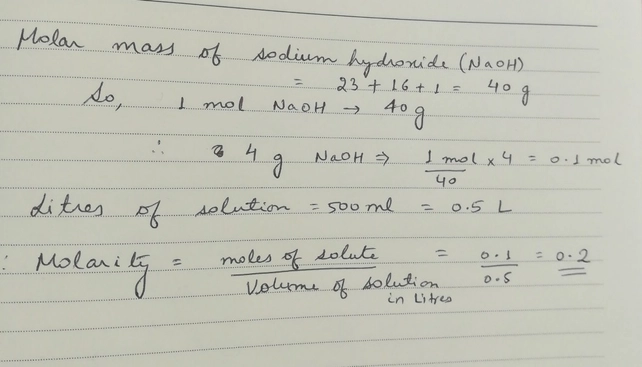 Molar mass of sodium hydroxide (NaOH)
= 23 + 16 + 1 = 40 g
So, 1 mol NaOH → 40 g
∴ 4 g NaOH ⇒ 1 mol/40 × 4 = 0.1 mol
Litres of solution = 500 ml = 0.5 L
∴ Molarity = moles of solute / Volume of solution in Litres = 0.1/0.5 = 0.2